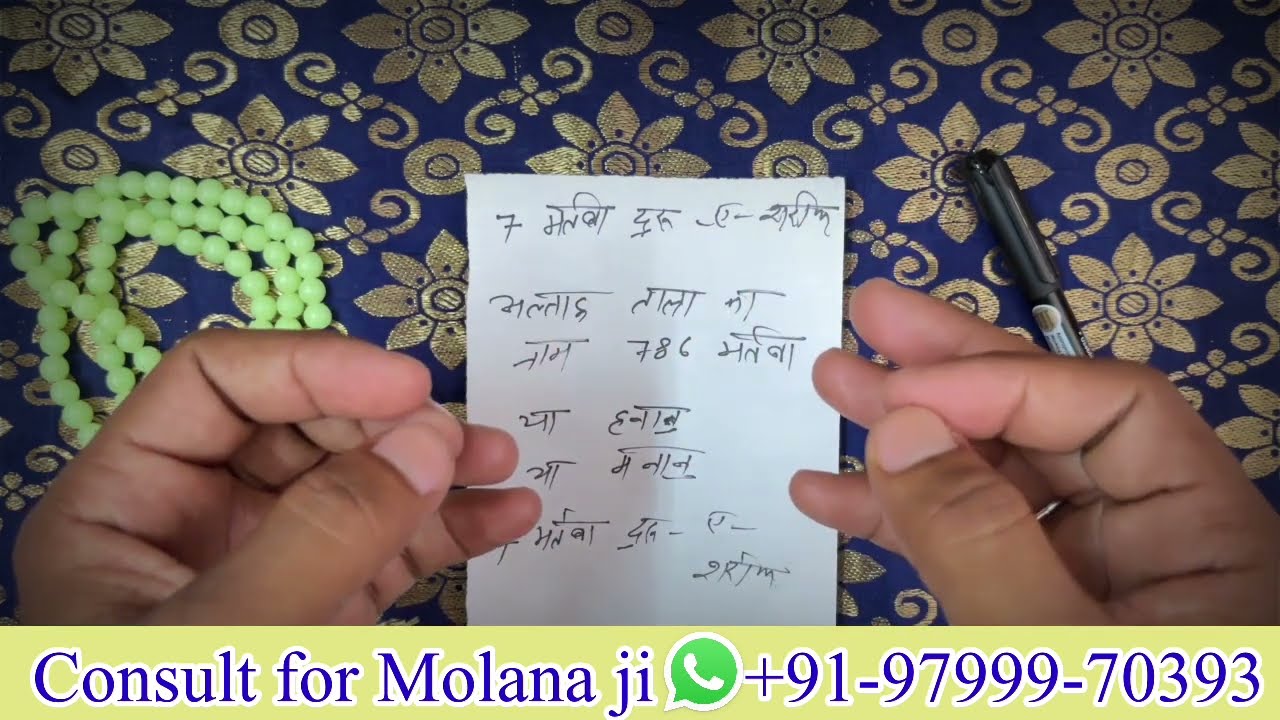 7 मर्तबा दुरू -ए- शरीफ
अल्लाह ताला का
नाम 786 मर्तबा
या हनानु
या मनानु
मर्तबा दुरू - ए -
शरीफ
Consult for Molana ji +91-97999-70393